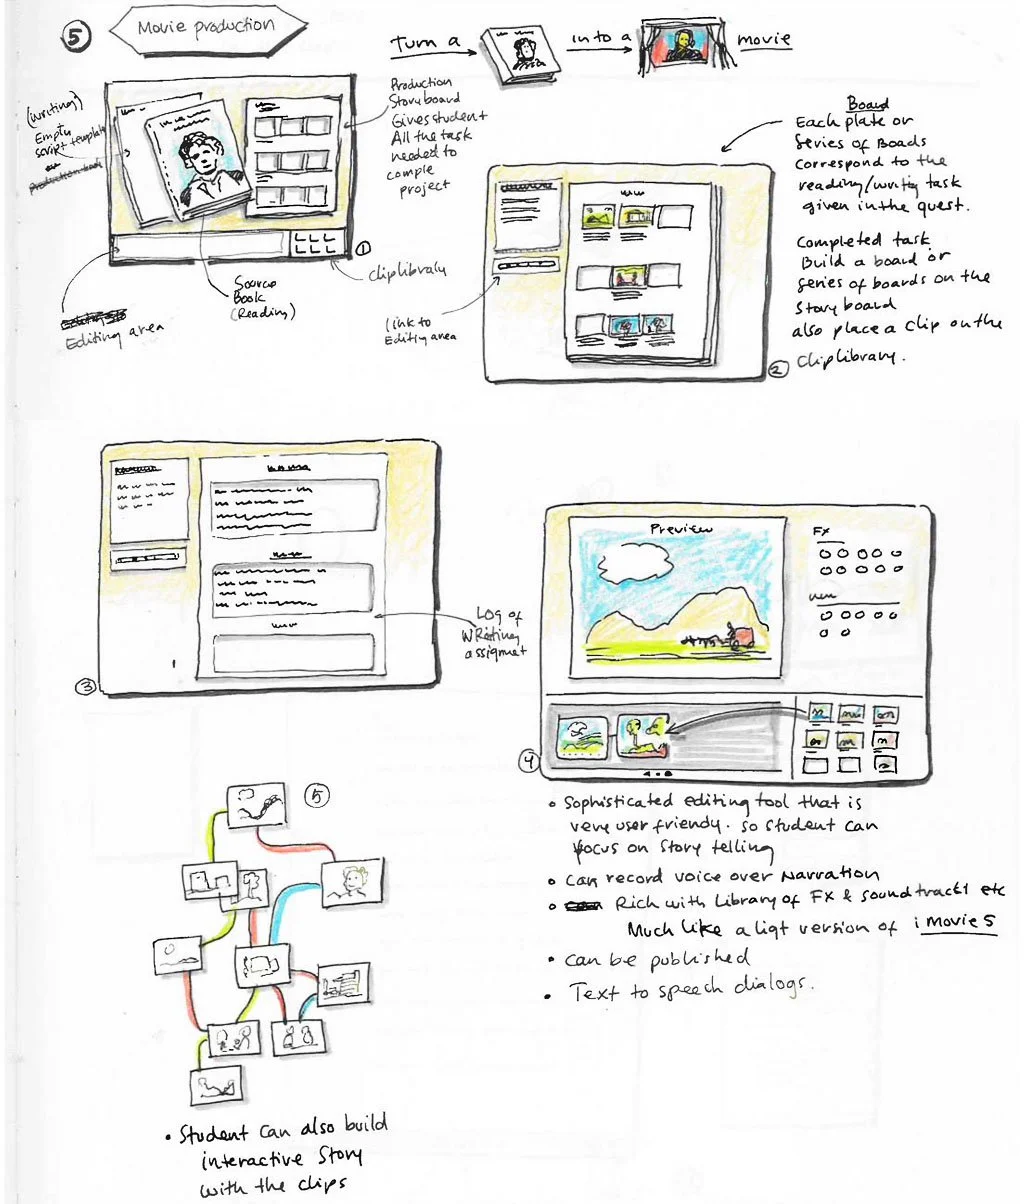 5
Movie production
Turn a
into a
movie
(writing)
Empty
script template
or
Production book
Production
Storyboard
Gives student
All the task
needed to
comple
project
1
cliplibraly
Source
Book
(Reading)
Editing area
Board
Each plate or
Series of Boads
correspond to the
reading/writig task
given in the quest.
Completed task
Build a board or
series of boards on the
Story board
also place a clip on the
cliplibrary.
2
link to
Editig area
3
LOG of
WRiting
assigmet
Preview
FX
4
• Sophisticated editing tool that is
very user friendy. so student can
focus on Story telling
• can record voice over Narration
• Rich with Library of FX & soundtrack etc
Much like a ligt version of i Movie 5
• can be published
• Text to speech dialogs.
5
• Student can also build
interactive Story
with the clips